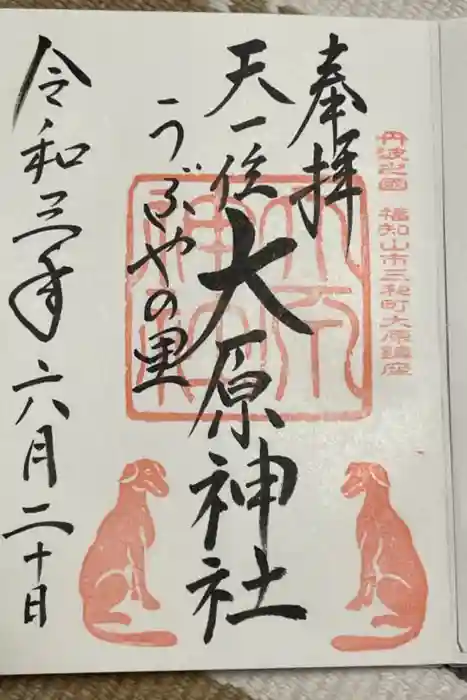 丹波之國 福知山市三和町大原鎮座
奉拝
天一位 大原神社
うぶやの里
令和三年六月二十日